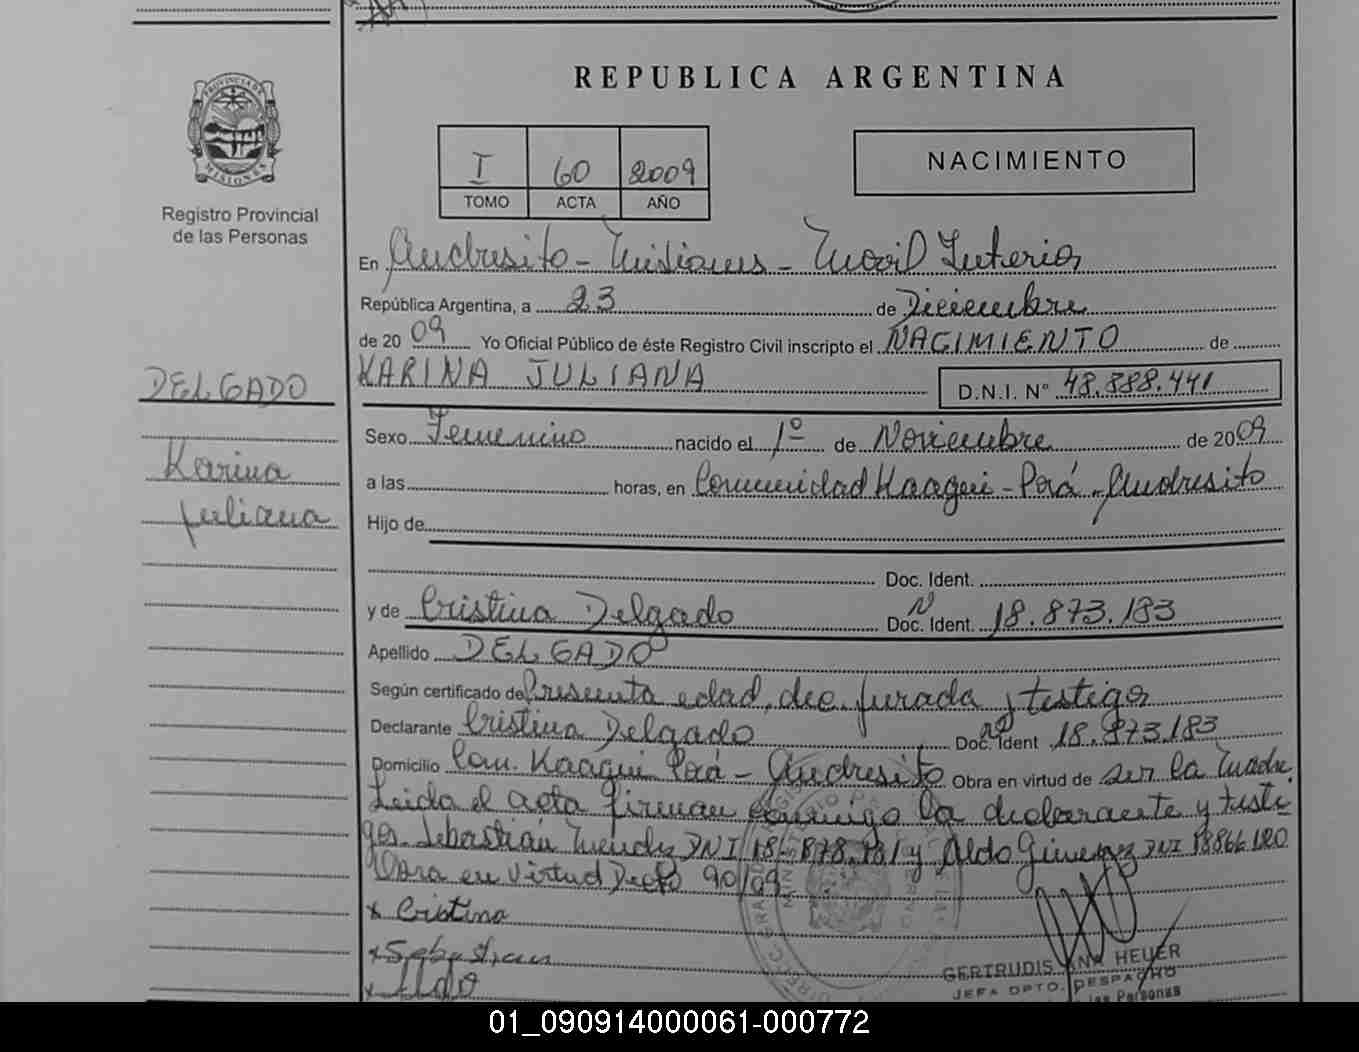 PROVINCIA DE
MISIONES
Registro Provincial
de las Personas
DELGADO
Karina
Juliana
REPUBLICA ARGENTINA
I 60 2009
TOMO ACTA AÑO
NACIMIENTO
En Andresito - Misiones - Movil Interior
República Argentina, a 23 de Diciembre
de 2009 Yo Oficial Público de éste Registro Civil inscripto el NACIMIENTO de
KARINA JULIANA D.N.I. Nº 48.388.441
Sexo Femenino nacido el 1º de Noviembre de 2009
a las horas, en Comunidad Kaagui-Porá - Andresito
Hijo de
Doc. Ident.
y de Cristina Delgado Doc. Ident. 18.873.183
Apellido DELGADO
Según certificado de Presunta edad, dec. jurada y testigos
Declarante Cristina Delgado Doc. Ident 18.873.183
Domicilio Com. Kaagui Porá - Andresito Obra en virtud de ser la madre.
Leida el acta firman conmigo la declarante y testi-
gos Sebastián Mendez DNI y Aldo Gimenez DNI
Obra en virtud Decto 90/09
x Cristina
x Sebastian
x Aldo
GERTRUDIS ANA HEUER
JEFA DPTO. DESPACHO
las Personas
01_090914000061-000772